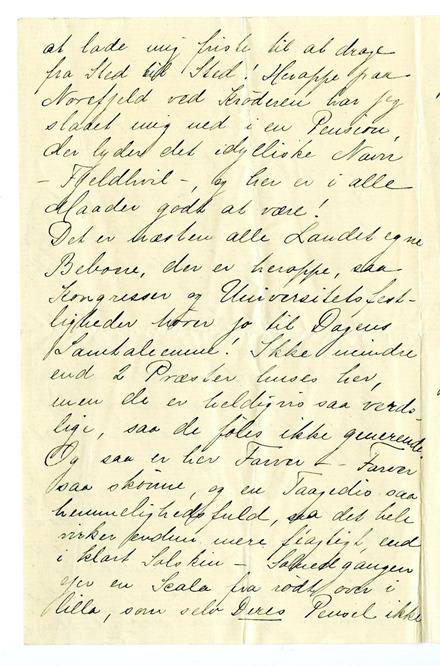 at lade mig friste til at drage
fra Sted til Sted! Heroppe paa
Norefjeld ved Krøderen har jeg
slaaet mig ned i en Pension,
der lyder det idylliske Navn
- Fjeldhvil -, og her er i alle
Maader godt at være!
Det er næsten alle Landets egne
Beboere, der er heroppe, saa
Kongresser og Universitetsfest-
ligheder hører jo til Dagens
Samtaleemne! Ikke mindre
end 2 Præster huses her,
men de er heldigvis saa verds-
lige, saa de føles ikke generende.
Og saa er her Farver - - Farver
saa skønne, og en Taagedis saa
hemmelighedsfuld, saa det hele
virker endnu mere, end
i klart Solskin - Solnedgangen
ejer en Scala fra rødt over i
lilla, som selv Deres Pensel ikke